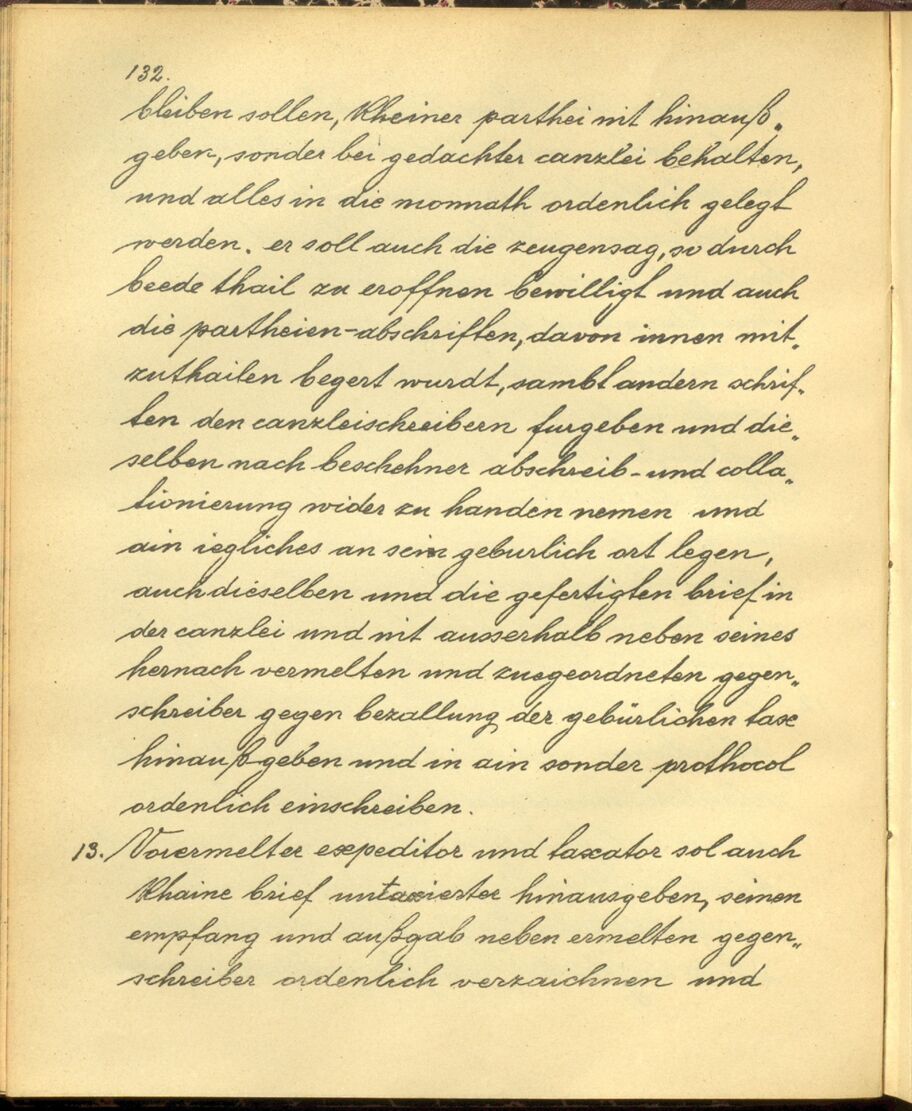 132.
bleiben sollen, kheiner parthei nit hinauß„
geben, sonder bei gedachter canzlei behalten,
und alles in die monnath ordenlich gelegt
werden. er soll auch die zeugensag, so durch
beede thail zu eroffnen bewilligt und auch
die partheien-abschriften, davon innen mit„
zuthailen begert wurdt, sambt andern schrif„
ten den canzleischreibern furgeben und die„
selben nach beschehner abschreib- und colla„
tionierung wider zu handen nemen und
ain iegliches an sein geburlich ort legen,
auch dieselben und die gefertigten brief in
der canzlei und nit ausserhalb neben seines
hernach vermelten und zuegeordneten gegen„
schreiber gegen bezallung der gebürlichen tax
hinaußgeben und in ain sonder prothocol
ordenlich einschreiben.
13. Vorermelter expeditor und taxator sol auch
khaine brief untaxierter hinausgeben, seinen
empfang und außgab neben ermelten gegen„
schreiber ordenlich verzaichnen und